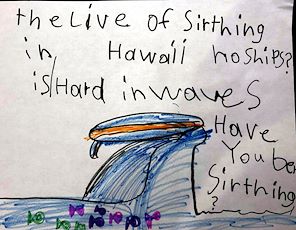 the Live of Sirthing
in Hawaii no ships?
is/Hard in waves
Have
You be
Sirthing
?